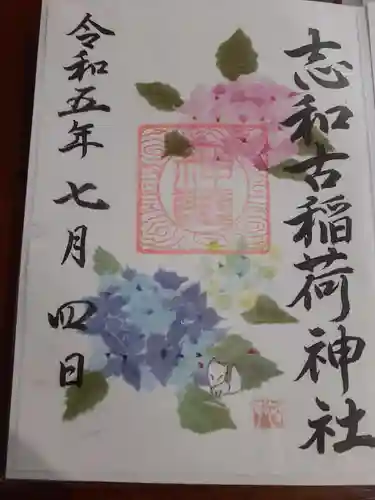 志和古稲荷神社
令和五年 七月 四日